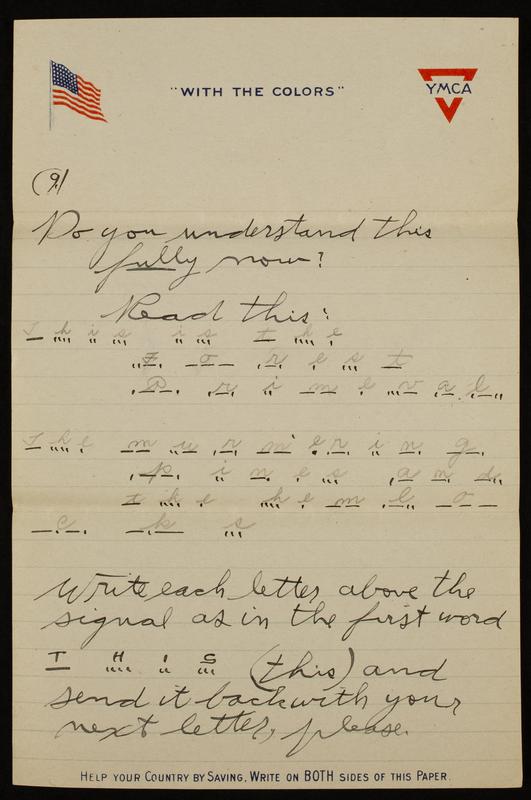 "WITH THE COLORS"
YMCA
(9)
Do you understand this
fully now?
Read this:
T h i s i s t h e
F o r e s t
P r i m e v a l
T h e m u r m e r i n g
p i n e s a n d
t h e h e m l o
c k s
Write each letter above the
signal as in the first word
T H I S (this) and
send it back with your
next letter, please.
HELP YOUR COUNTRY BY SAVING, WRITE ON BOTH SIDES OF THIS PAPER.